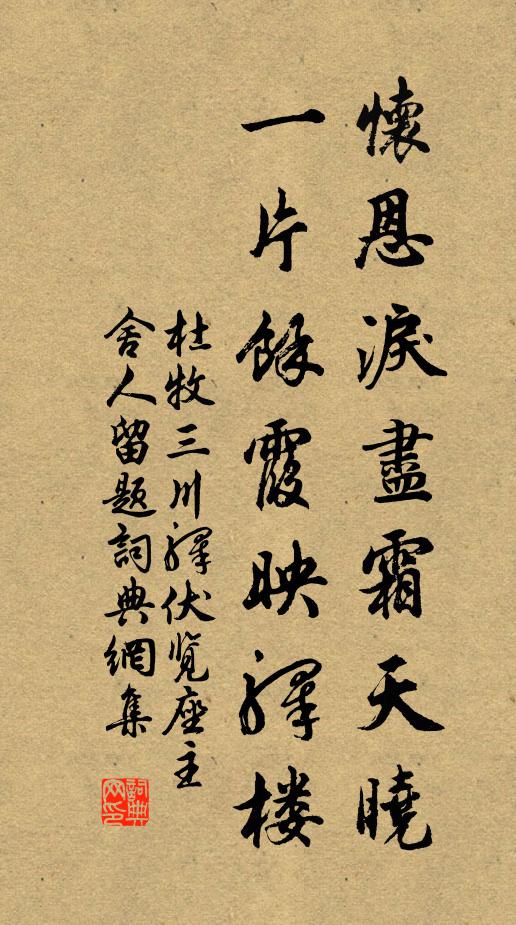 懷恩淚盡霜天曉
一片餘霞映驛楼
杜牧三川驛伏覧座主
舍人留題詞典網集
詞典
网印